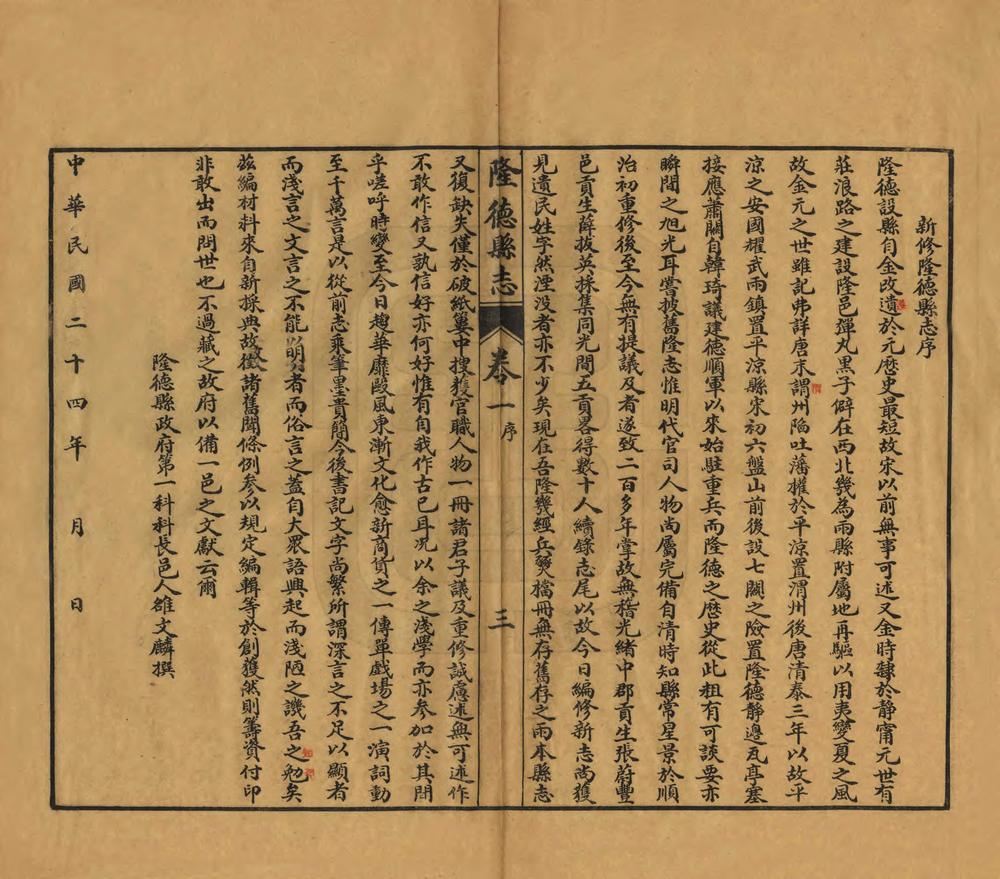 新修隆德縣志序
隆德設縣自金改遺於元歷史最短故宋以前無事可述又金時隸於静甯元世有
莊浪路之建設隆邑彈丸黑子僻在西北幾為兩縣附屬地再驅以用夷變夏之風
故金元之世雖記弗詳唐末謂州陷吐藩權於平涼置渭州後唐清泰三年以故平
涼之安國耀武兩鎮置平涼縣宋初六盤山前後設七關之險置隆德静邊瓦亭塞
接應蕭關自韓琦議建德順軍以來始駐重兵而隆德之歷史從此粗有可談要亦
瞬間之旭光耳嘗披舊隆志惟明代官司人物尚屬完備自清時知縣常星景於順
治初重修後至今無有提議及者遂致二百多年掌故無稽光緒中郡貢生張蔚豐
邑貢生薛拔英採集同光間五貢畧得數十人續錄志尾以故今日編修新志尚獲
見遺民姓字然湮没者亦不少矣現在吾隆幾經兵燹檔冊無存舊存之兩本縣志
隆德縣志 卷一 序 三
又復缺失僅於破紙簍中搜獲官職人物一冊諸君子議及重修誠慮述無可述作
不敢作信又孰信好亦何好惟有自我作古已耳况以余之淺學而亦參加於其間
乎嗟呼時變至今日趨華靡歐風東漸文化愈新商貨之一傳單戲場之一演詞動
至千萬言是以從前志乘筆墨貴簡今後書記文字尚繁所謂深言之不足以顯者
而淺言之文言之不能以明者而俗言之蓋自大眾語興起而淺陋之譏吾之勉矣
茲編材料來自新採典故徵諸舊聞條例參以規定編輯等於創獲然則籌資付印
非敢出而問世也不過藏之故府以備一邑之文獻云爾
隆德縣政府第一科科長邑人雒文麟撰
中華民國二十四年 月 日